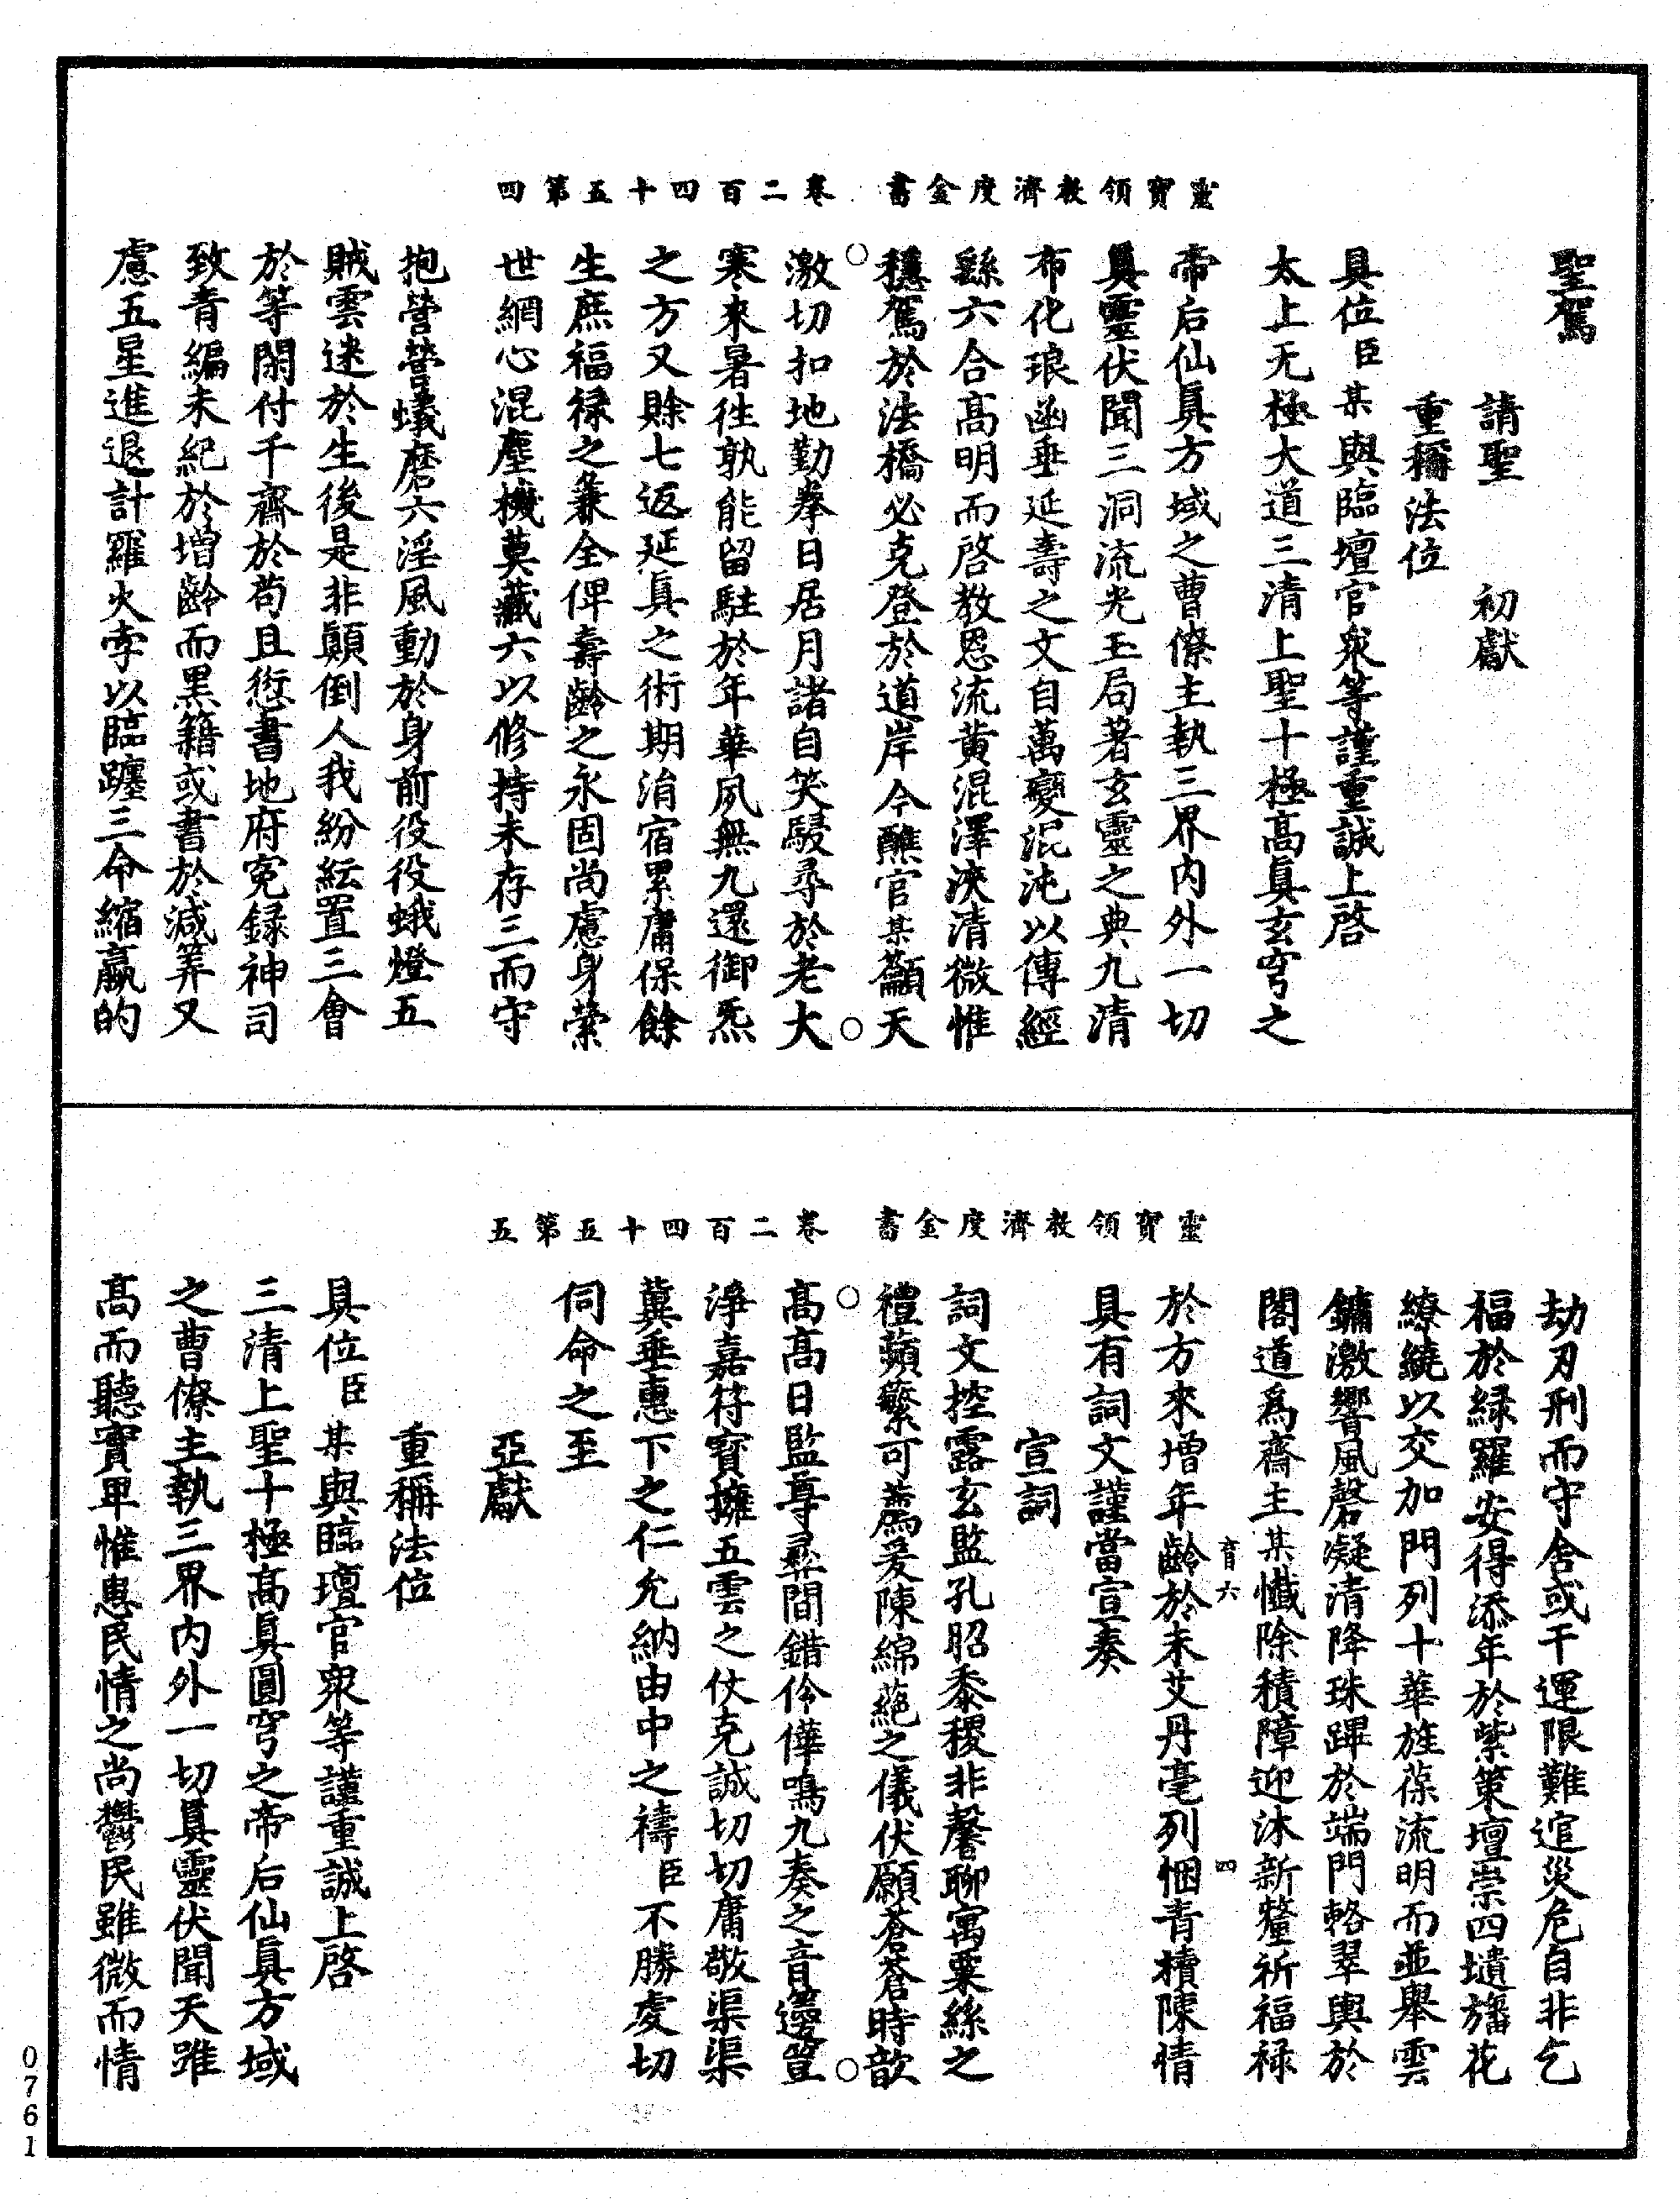 聖駕
請聖　初獻
重稱法位
具位臣某與臨壇官衆等謹重誠上啓
太上无極大道三清上聖十極高眞玄穹之
帝后仙眞方域之曹僚主執三界内外一切
眞靈伏聞三洞流光玉局著玄靈之典九清
布化琅函垂延壽之文自萬變混沌以傳經
繇六合高明而啓教恩流黄混澤浹清微惟
穩駕於法橋必克登於道岸今醮官某籲天
激切扣地勤拳日居月諸自笑駸尋於老大
寒來暑徃孰能留駐於年華夙無九還御炁
之方又賖七返延眞之術期消宿累庸保餘
生庶福祿之兼全俾壽齡之永固尚慮身縈
世網心混塵機莫藏六以修持未存三而守
抱營營蟻磨六淫風動於身前役役蛾燈五
賊雲迷於生後是非顚倒人我紛紜置三會
於等閑付千齋於苟且愆書地府寃録神司
致青編未紀於增齡而黑籍或書於減筭又
慮五星進退計羅火孛以臨躔三命縮贏的
靈寶領教濟度金書　卷二百四十五第四
劫刃刑而守舍或干運限難逭災危自非乞
福於緑羅安得添年於紫策壇崇四壝旛花
繚繞以交加門列十華旌葆流明而並舉雲
鏞激響風磬凝清降珠蹕於端門輅翠輿於
閣道爲齋主某懺除積障迎沐新釐祈福禄
於方來增年齡於未艾丹毫列悃青櫝陳情
具有詞文謹當宣奏
宣詞
詞文控露玄監孔昭黍稷非馨聊寓粟絲之
禮蘋蘩可薦爰陳綿蕝之儀伏願蒼蒼時歆
高高日監尊彞間錯伶倕鳴九奏之音籩豆
淨嘉符寶擁五雲之仗克誠切切庸敬渠渠
冀垂惠下之仁允納由中之禱臣不勝虔切
伺命之至
亞獻
重稱法位
具位臣某與臨壇官衆等謹重誠上啓
三清上聖十極高眞圓穹之帝后仙眞方域
之曹僚主執三界内外一切眞靈伏聞天雖
高而聽實卑惟惠民情之尚鬱民雖微而情
靈寶領教濟度金書　卷二百四十五第五
育六
四
0761